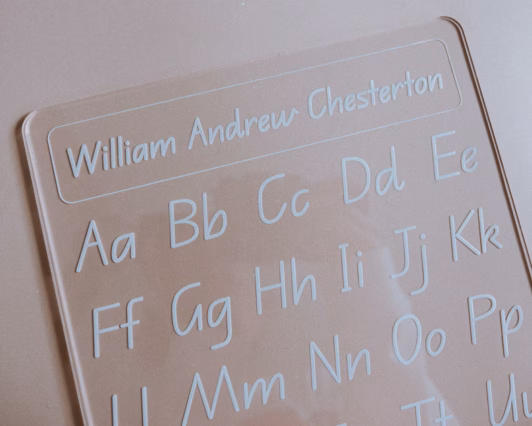 William Andrew Chesterton
Aa Bb Cc Dd Ee
Ff Gg Hh Ii Jj Kk
Mm Nn Oo Pp
Tt Uu